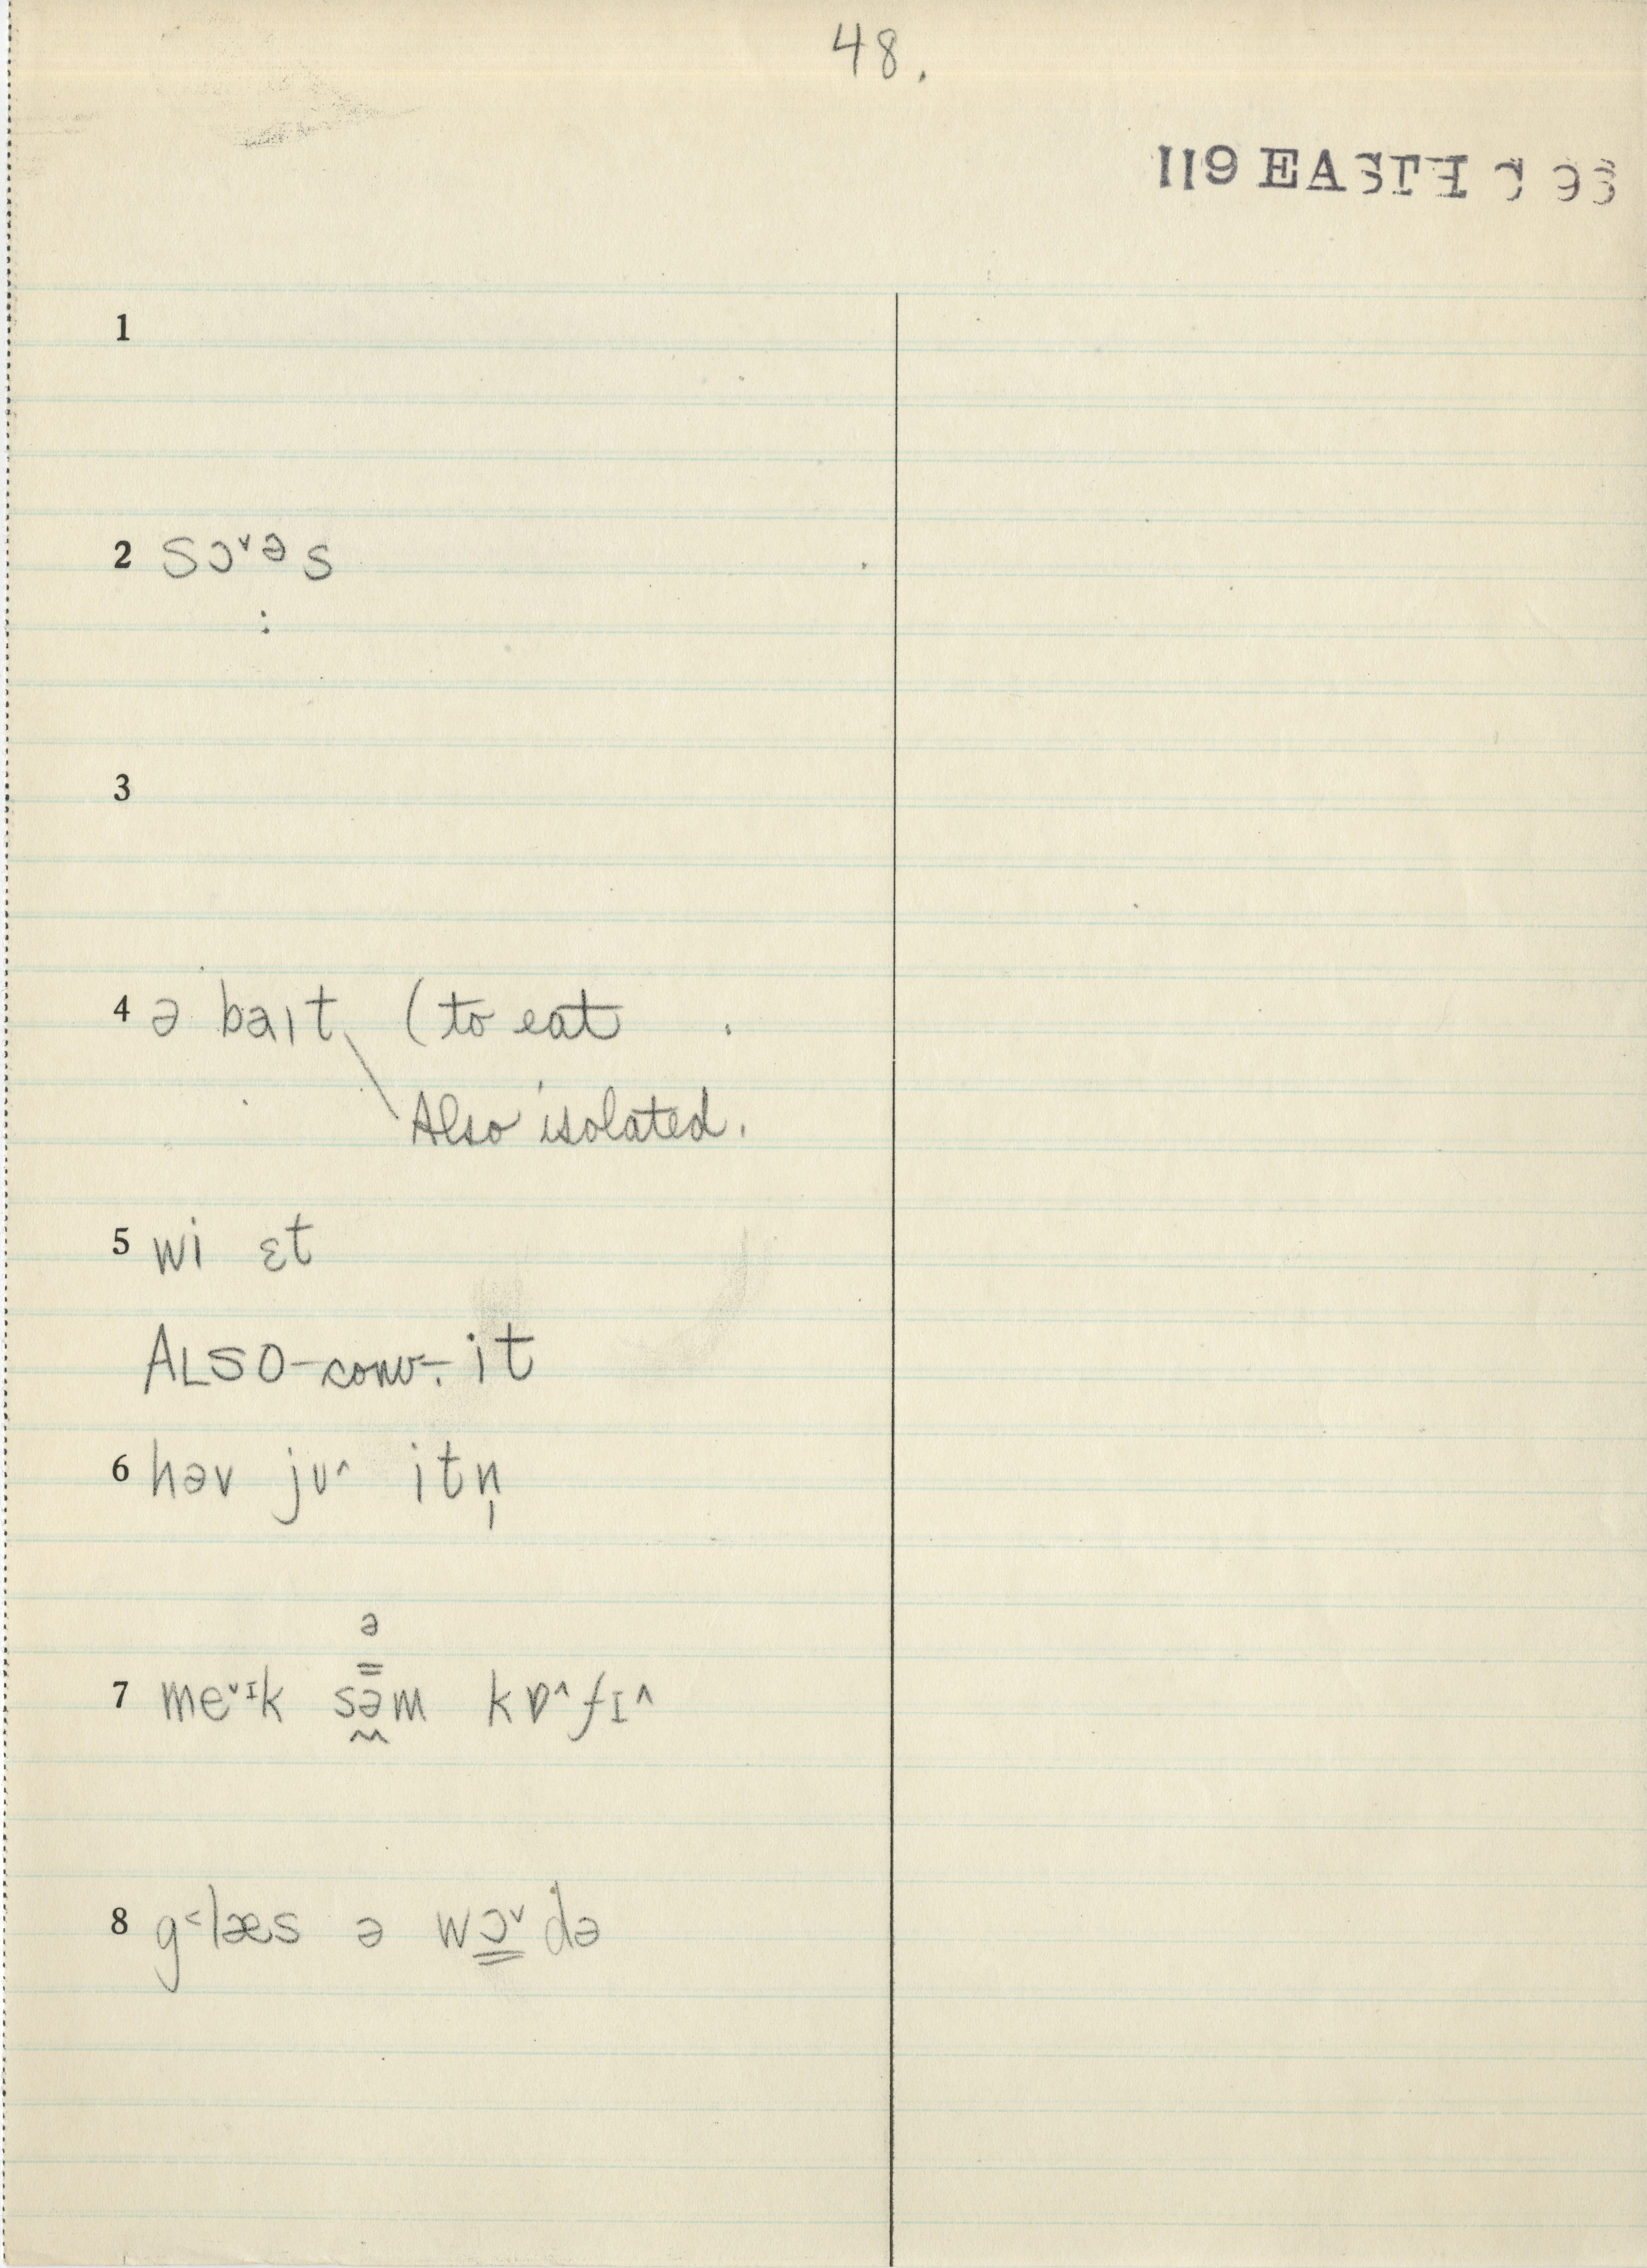 48.
119 EAST
1
2 sɔ˅ᵊs
:
3
4 ə baıt (to eat
Also isolated.
5 wi ɛt
ALSO-conv.- it
6 həv jʊ^ itn̩
ə
7 me˅ᴵk səm kɒ^fɪ^
8 g˂læs ə wɔ˅də